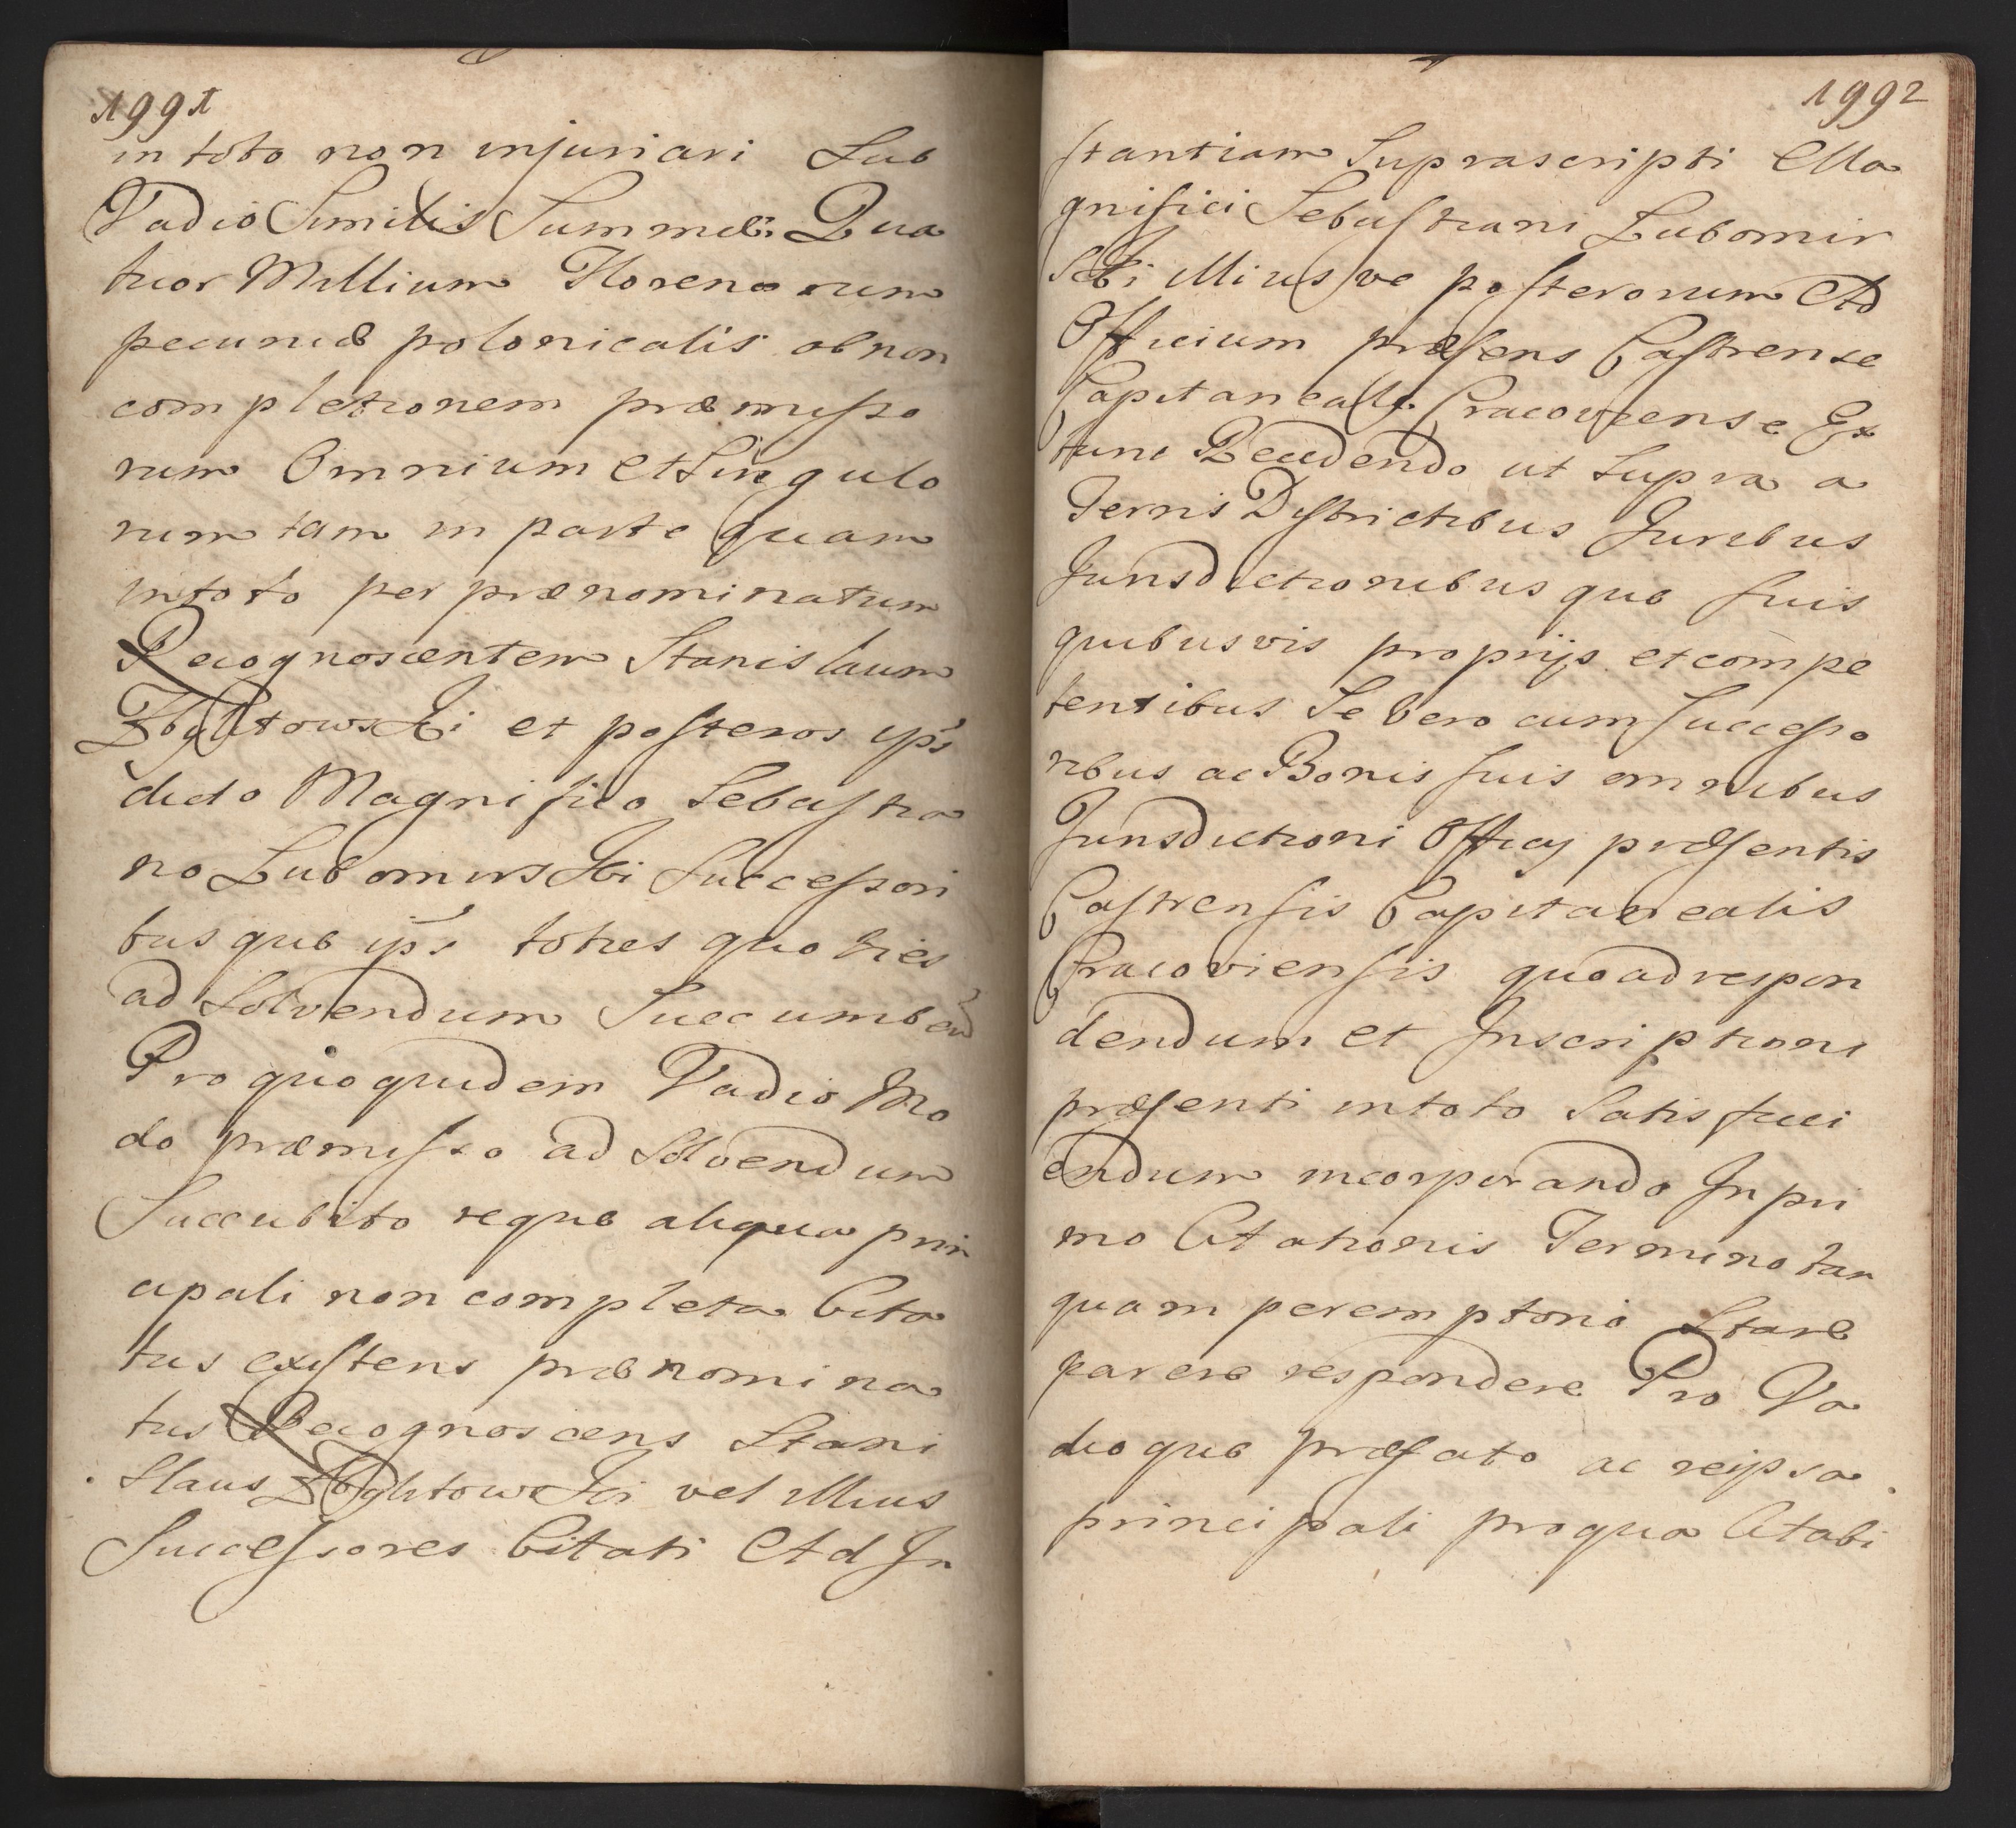 1991
in toto non injuriari Sub
Vadio Similis Summæ Qua
tuor Millium Florenorum
pecuniæ polonicalis ob non
completionem præmisso
rum Omnium et Singulo
rum tam in parte quam
in toto per prænominatum
Recognoscentem Stanislaum
et posteros ips
dicto Magnifico Sebastia
no Lubomirski Successori
busque ips toties quoties
ad Solvendum Succumben
Pro quo quidem Vadio Mo
do præmisso ad Solvendum
Succubito reque aliqua prin
cipali non completa Cita
tus existens prænomina
tus Recognoscens Stani
slaus vel illius
Successores Citati Ad In
1992
stantiam Suprascripti Ma
gnifici Sebastiani Lubomir
ski illiusve posterorum Ad
Officium præsens Castrense
Capitaneale Cracoviense Ex
tunc Recedendo ut supra a
Terris Districtibus Juribus
Jurisdictionibusque suis
quibusvis proprijs et compe
tentibus Se vero cum Successo
ribus ac Bonis suis omnibus
Jurisdictioni Officij præsentis
Castrensis Capitanealis
Cracoviensis quoad respon
dendum et Inscriptioni
præsenti in toto Satisfaci
endum incorporando In pri
mo Citationis Termino tan
quam peremptorio Stare
parere respondere Pro Va
dioque præfato ac reipsa
principali pro qua Citabi